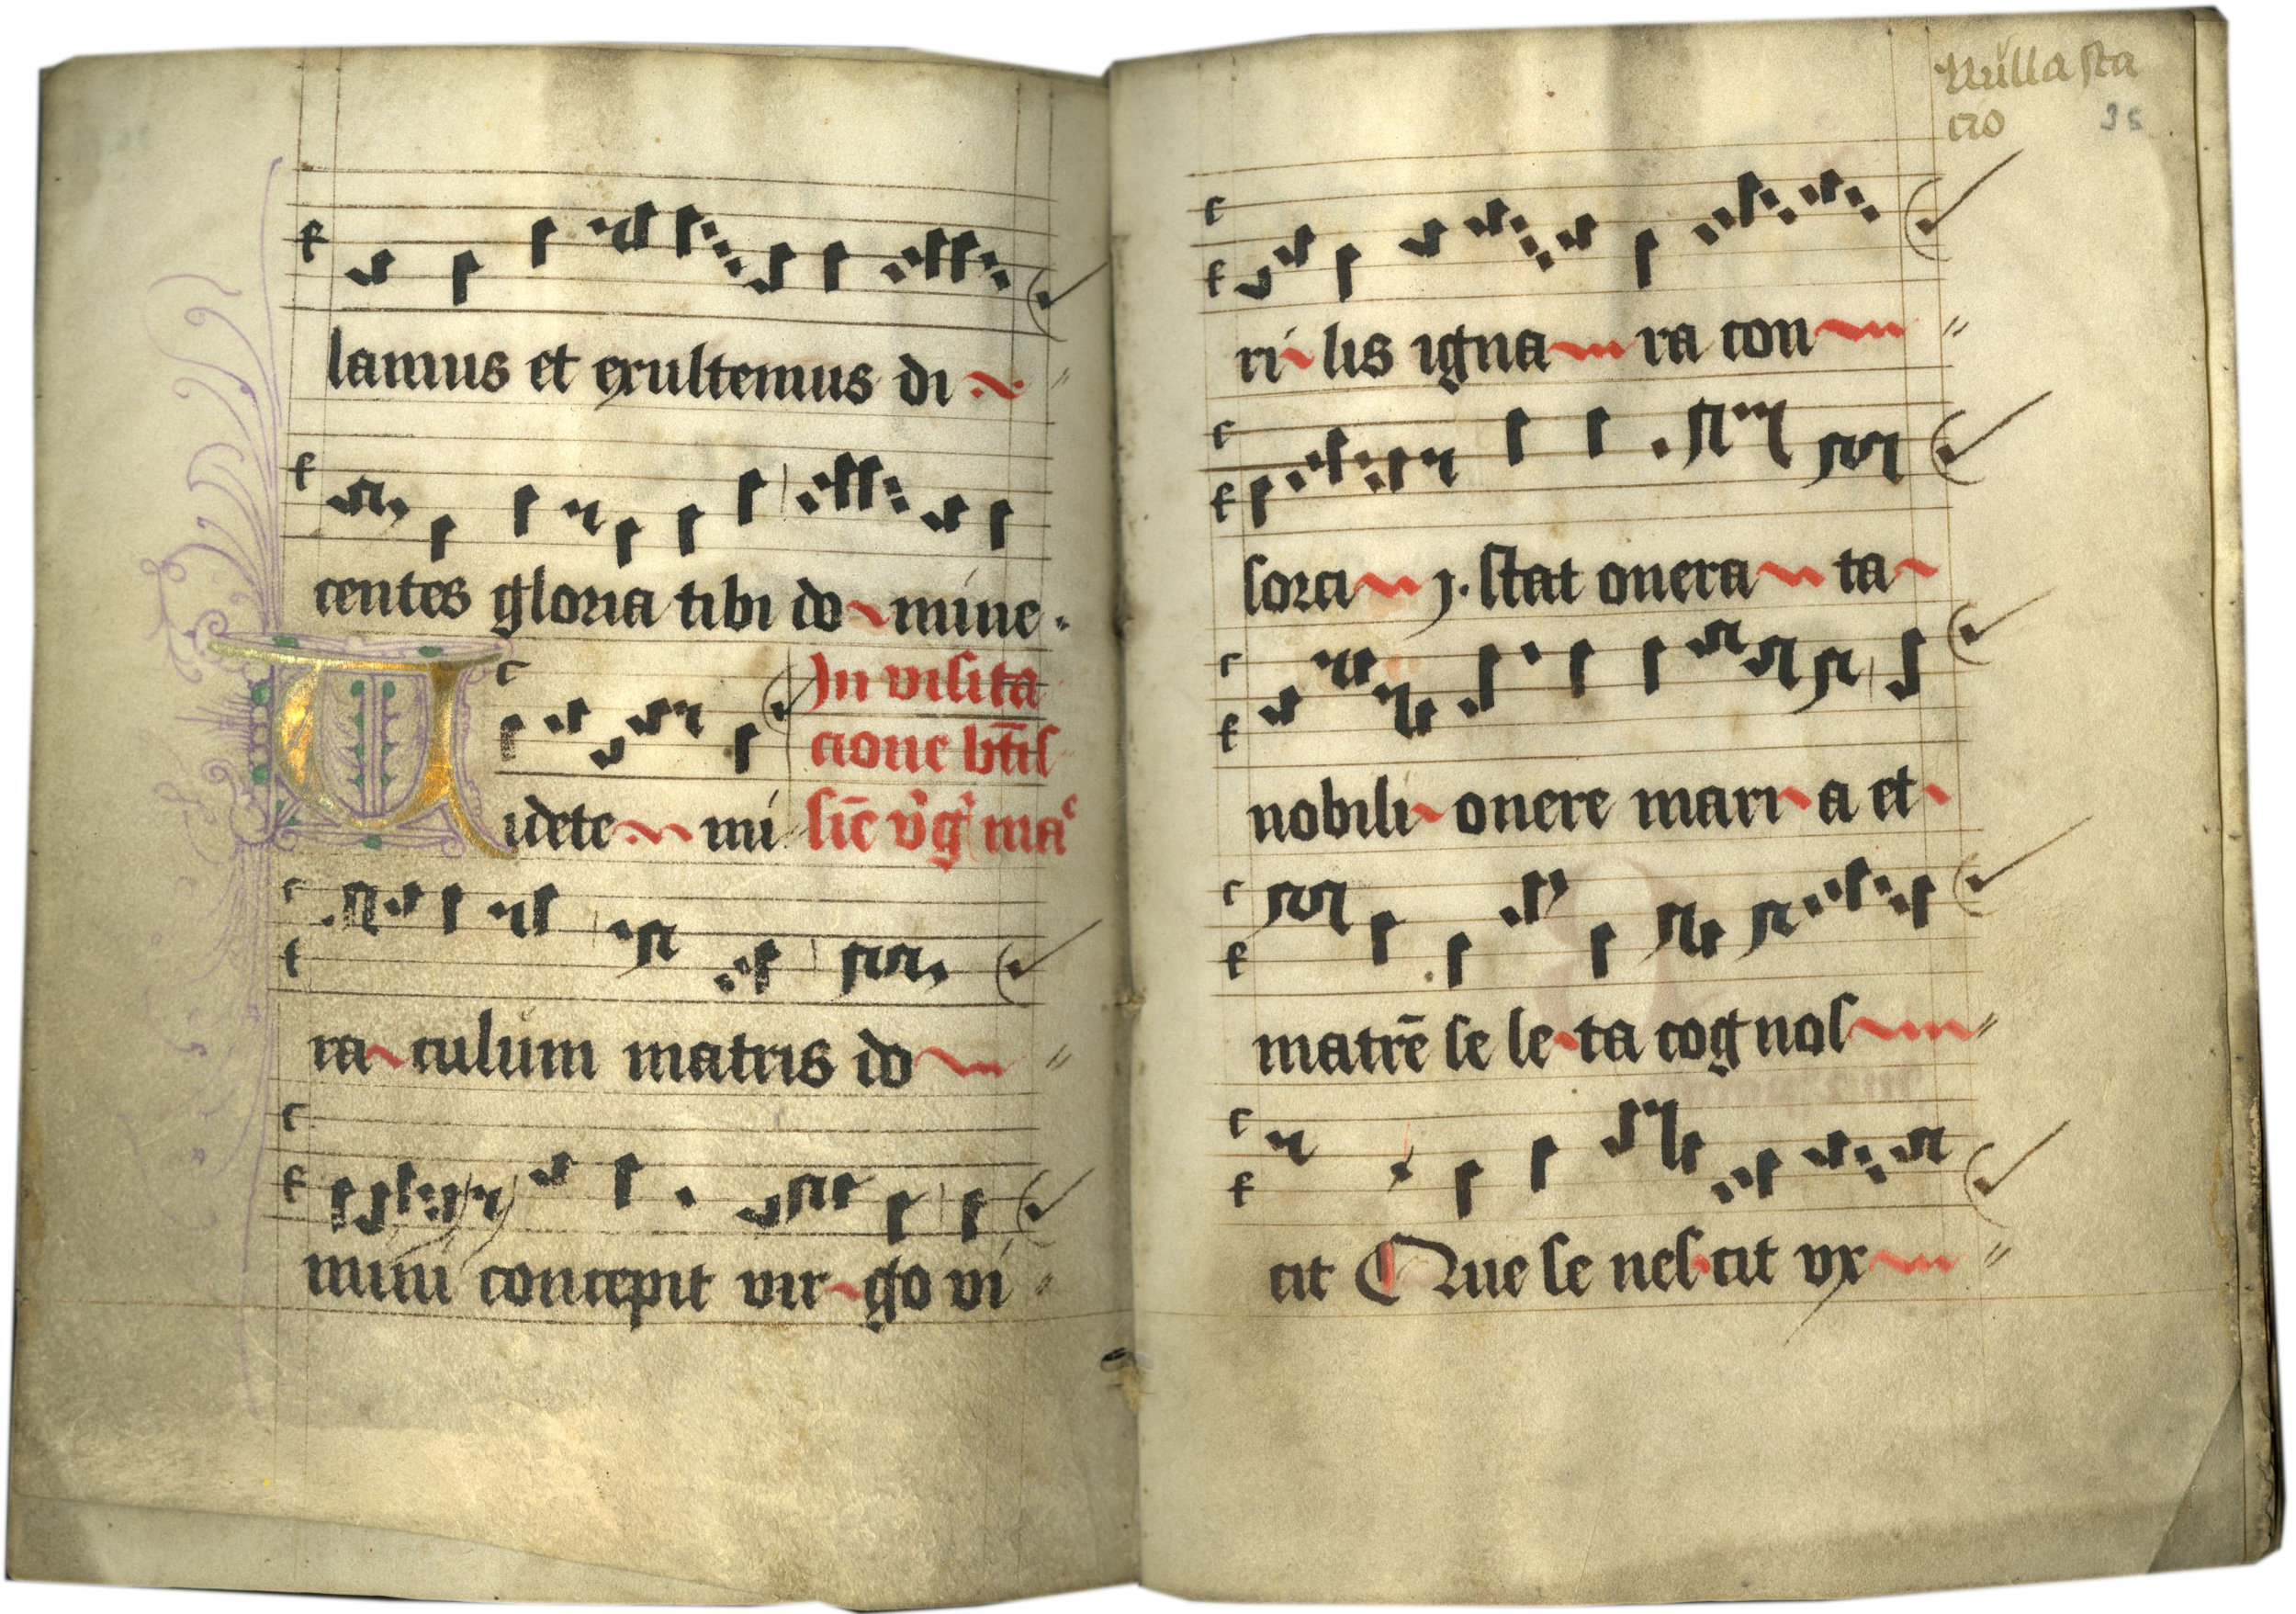 lamus et exultemus di
centes gloria tibi do mine.
In visita
cione btis
Videte mi siē v̄g ma
ra culum matris do
mini concepit vir go vi
Nulla sta
cio
35
ri lis igna ra con
sorci j. stat onera ta
nobili onere mari a et
matrē se le ta cognos
cit Que se nes cit vx